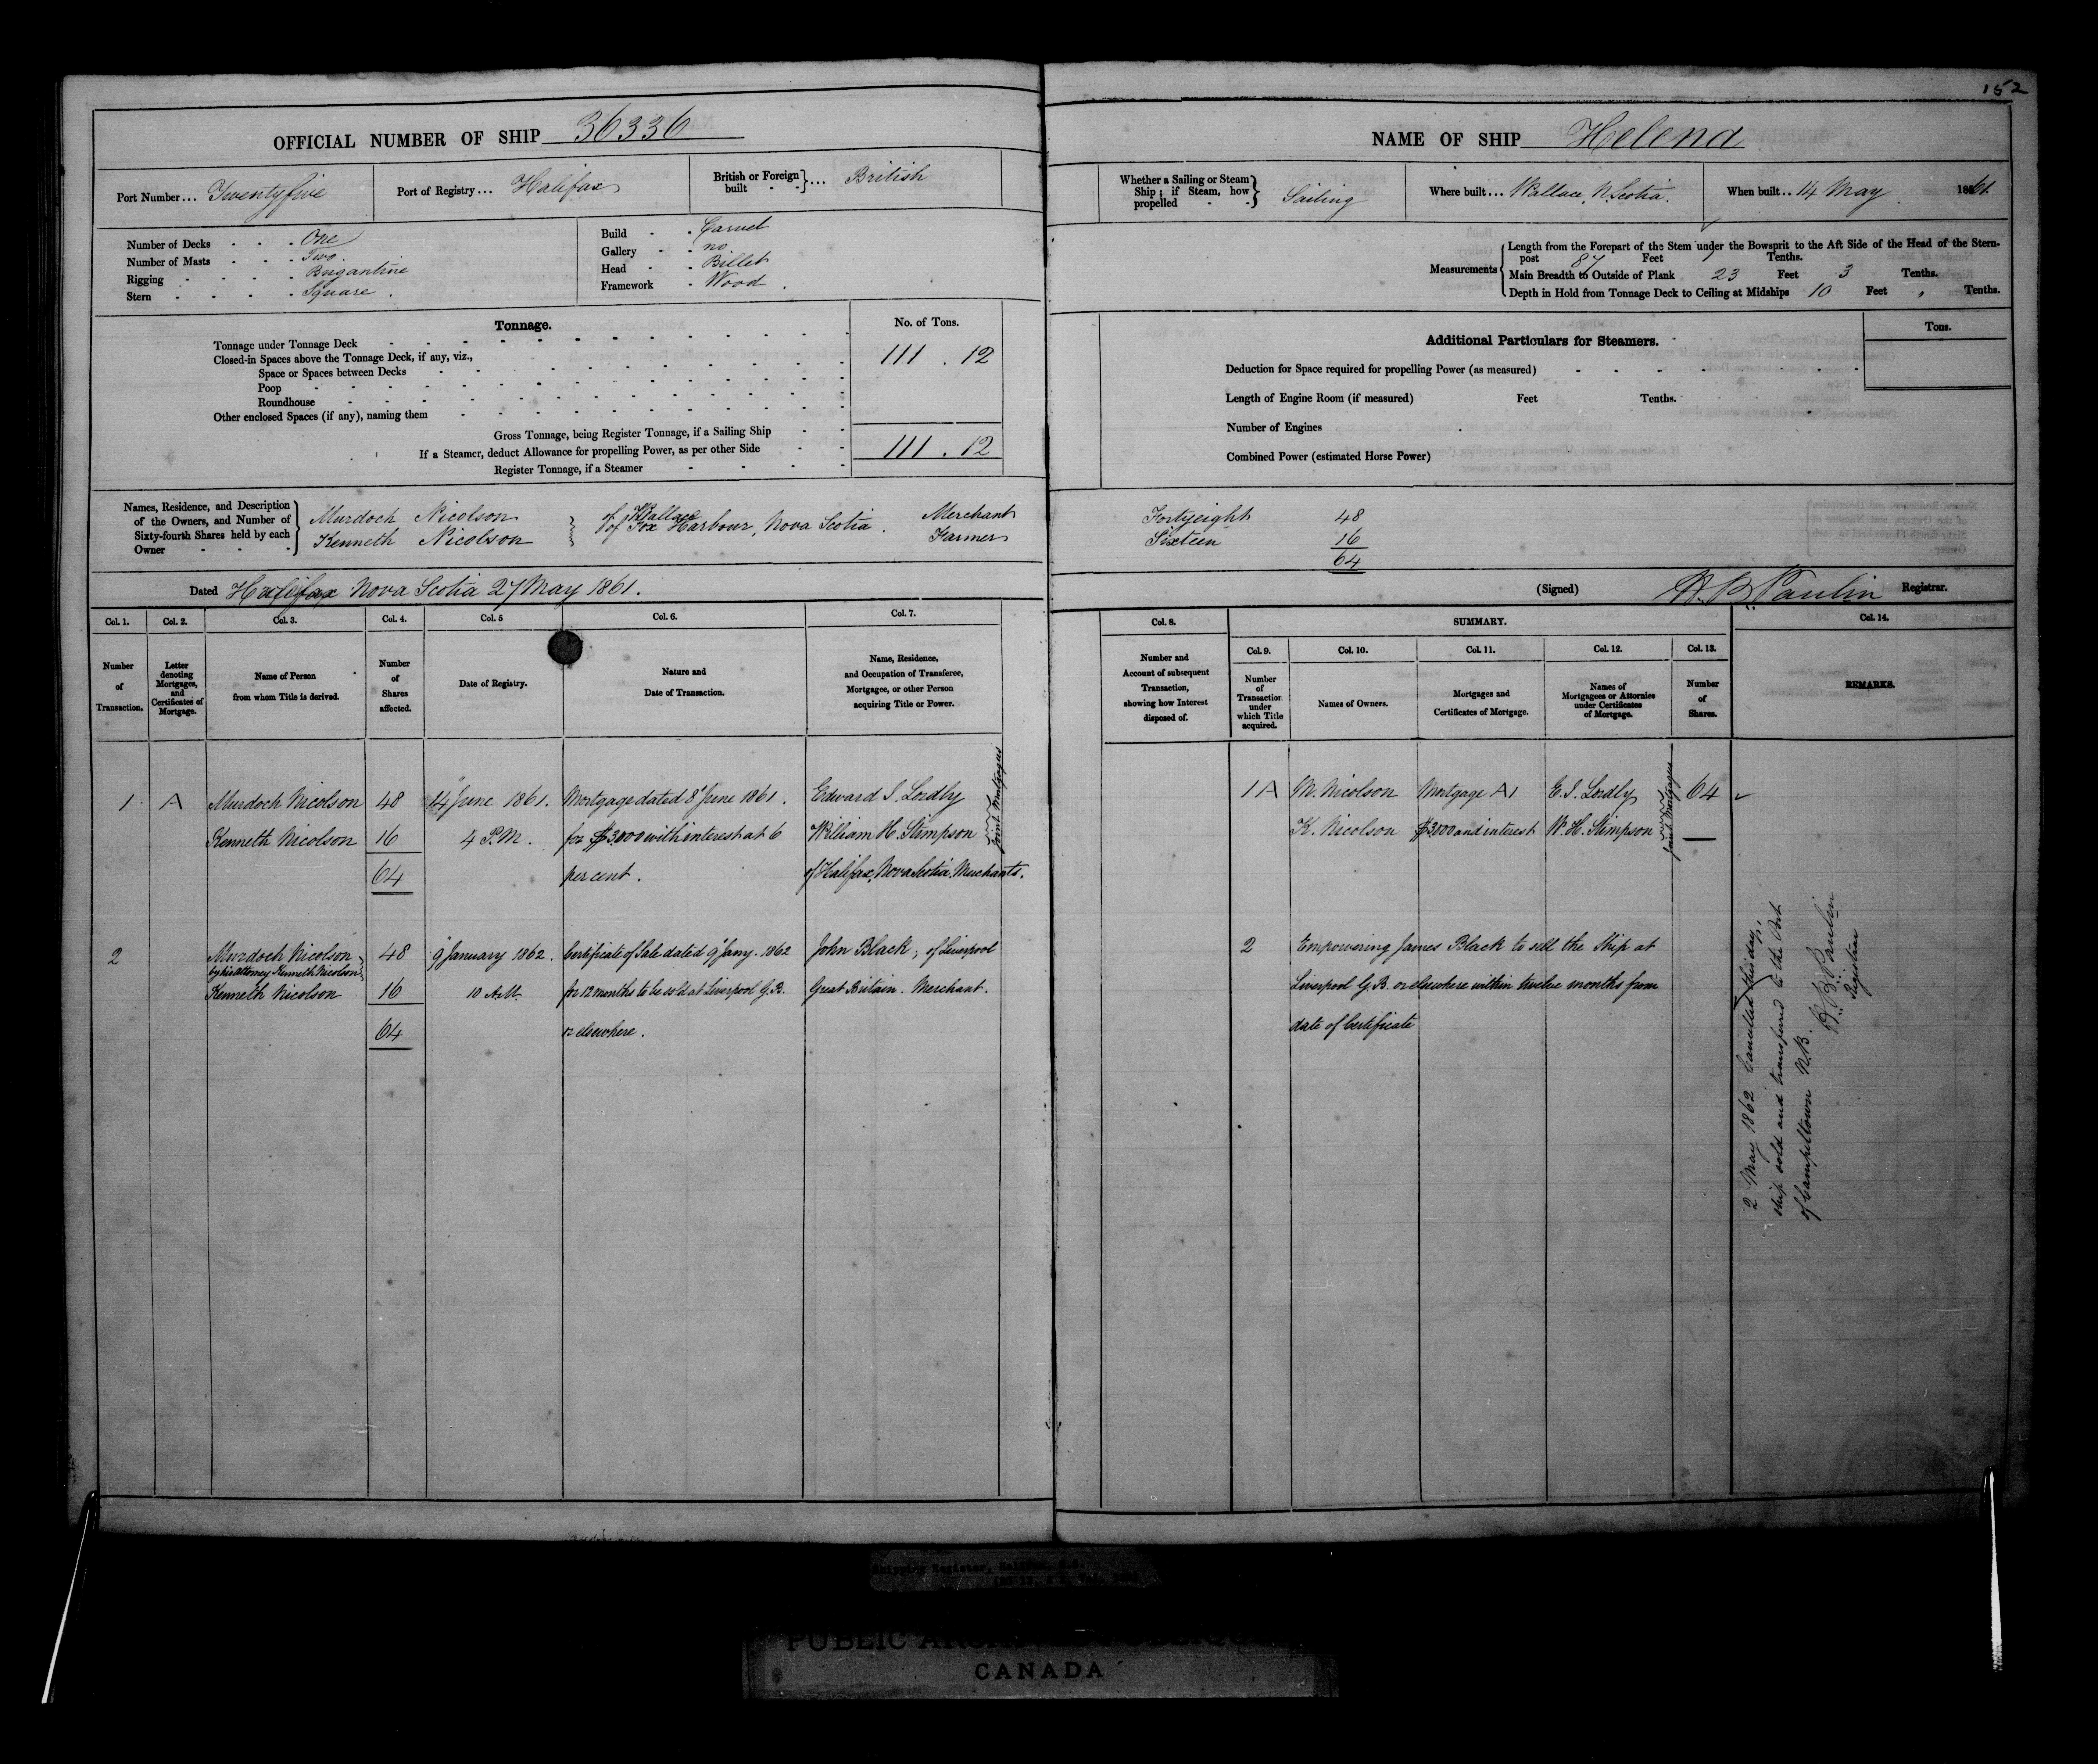 152
OFFICIAL NUMBER OF SHIP 36336
Port Number... Twentyfive
Port of Registry... Halifax
British or Foreign built - - }... British
Number of Decks - - - One
Number of Masts - - - Two.
Rigging - - - - Brigantine
Stern - - - - Square.
Build - - Carvel
Gallery - - no
Head - - Billet
Framework - Wood.
Tonnage.
No. of Tons.
Tonnage under Tonnage Deck
111 . 12
Closed-in Spaces above the Tonnage Deck, if any, viz.,
Space or Spaces between Decks
Poop
Roundhouse
Other enclosed Spaces (if any), naming them
Gross Tonnage, being Register Tonnage, if a Sailing Ship
If a Steamer, deduct Allowance for propelling Power, as per other Side
111 . 12
Register Tonnage, if a Steamer
Names, Residence, and Description
of the Owners, and Number of
Sixty-fourth Shares held by each
Owner
Murdoch Nicolson of Wallace Merchant
Kenneth Nicolson of Fox Harbour, Nova Scotia. Farmer
Dated Halifax Nova Scotia 27 May 1861.
Col. 1. Col. 2. Col. 3. Col. 4. Col. 5 Col. 6. Col. 7.
Number of Transaction.
Letter denoting Mortgages, and Certificates of Mortgage.
Name of Person from whom Title is derived.
Number of Shares affected.
Date of Registry.
Nature and Date of Transaction.
Name, Residence, and Occupation of Transferee, Mortgagee, or other Person acquiring Title or Power.
1. A Murdoch Nicolson 48 14 June 1861. Mortgage dated 8 June 1861. Edward I. Lordly
Kenneth Nicolson 16 4 P.M. for $3000 with interest at 6 William H. Stimpson
64 per cent. of Halifax, Nova Scotia, Merchants.
Joint Mortgagees
2 Murdoch Nicolson 48 9 January 1862. Certificate of Sale dated 9 Jany. 1862 John Black, of Liverpool
by his Attorney Kenneth Nicolson
Kenneth Nicolson 16 10 A.M. for 12 months to be sold at Liverpool G.B. Great Britain. Merchant.
64 or elsewhere.
NAME OF SHIP Helena
Whether a Sailing or Steam Ship; if Steam, how propelled - - } Sailing
Where built... Wallace, N. Scotia.
When built.. 14 May. 1861
Measurements
Length from the Forepart of the Stem under the Bowsprit to the Aft Side of the Head of the Stern-
post 87 Feet 7 Tenths.
Main Breadth to Outside of Plank 23 Feet 3 Tenths.
Depth in Hold from Tonnage Deck to Ceiling at Midships 10 Feet " Tenths.
Additional Particulars for Steamers.
Tons.
Deduction for Space required for propelling Power (as measured)
Length of Engine Room (if measured) Feet Tenths.
Number of Engines
Combined Power (estimated Horse Power)
Fortyeight 48
Sixteen 16
64
(Signed) H. B. Paulin Registrar.
Col. 8. SUMMARY. Col. 14.
Col. 9. Col. 10. Col. 11. Col. 12. Col. 13.
Number and Account of subsequent Transaction, showing how Interest disposed of.
Number of Transaction under which Title acquired.
Names of Owners.
Mortgages and Certificates of Mortgage.
Names of Mortgagees or Attornies under Certificates of Mortgage.
Number of Shares.
REMARKS.
1 A M. Nicolson Mortgage A1 E. I. Lordly 64
K. Nicolson $3000 and interest W. H. Stimpson
Joint Mortgagees
2 Empowering James Black to sell the Ship at
Liverpool G.B. or elsewhere within twelve months from
date of Certificate
2 May 1862 Cancelled this day,
ship sold and transferred to the Port
of Campbeltown N.B.
H. B. Paulin
Registrar
Shipping Register, Halifax, N.S.
PUBLIC
CANADA